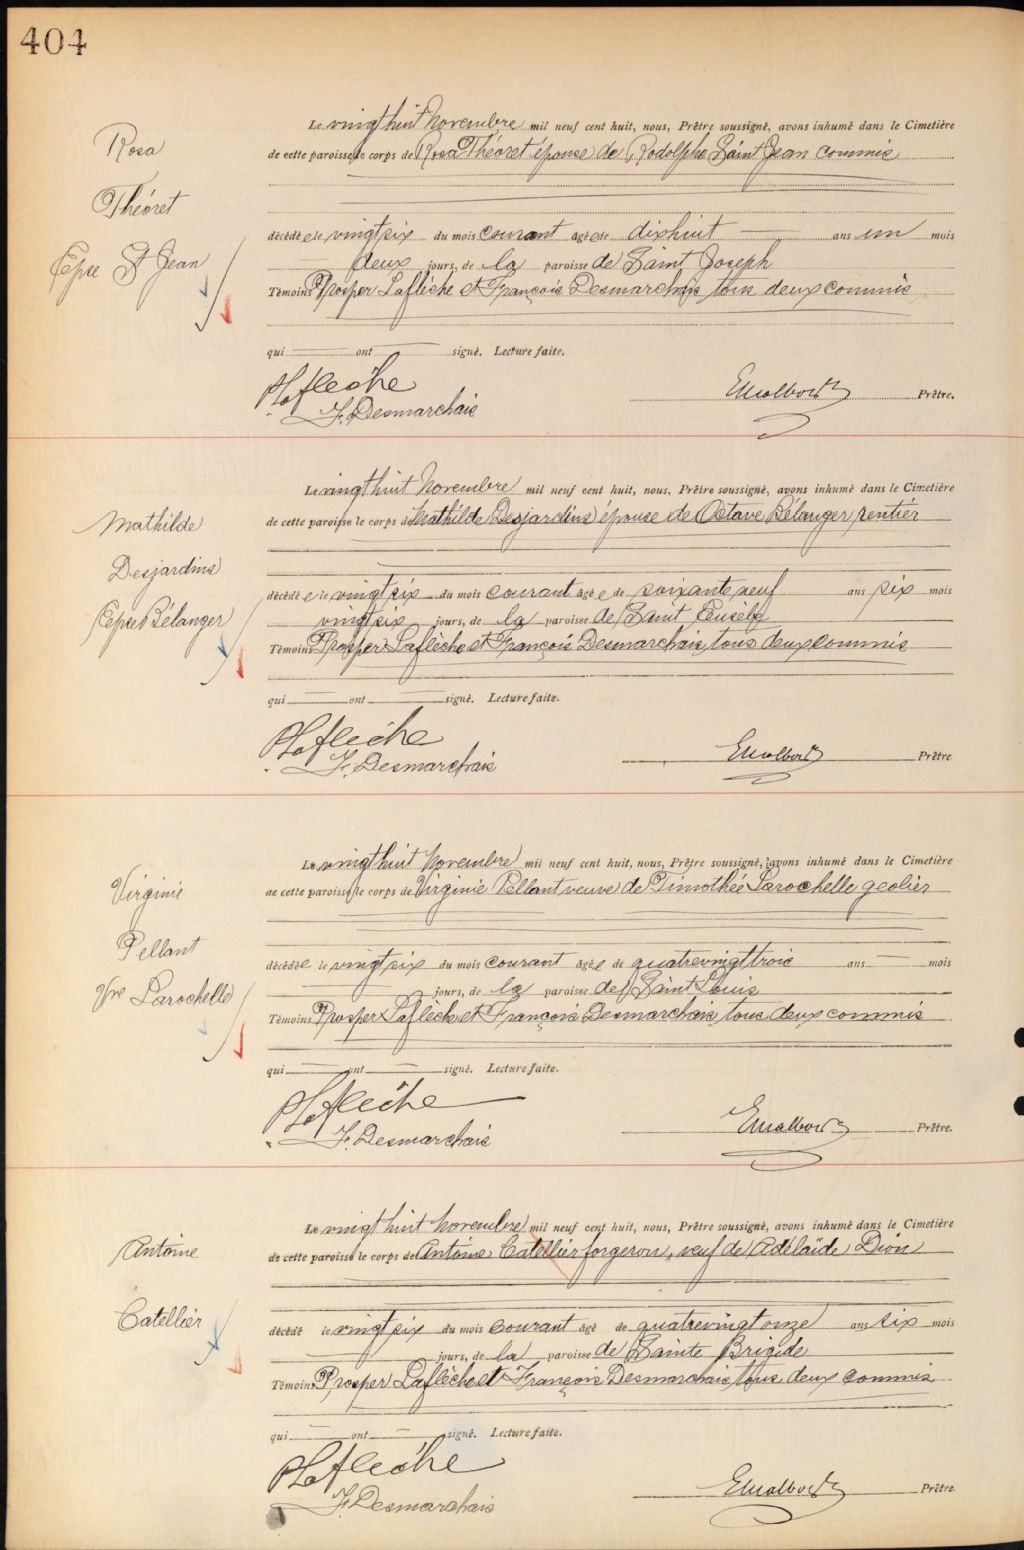 404
Rosa
Théoret
Épse St Jean
Le vingt huit Novembre mil neuf cent huit, nous, Prêtre soussigné, avons inhumé dans le Cimetière
de cette paroisse le corps de Rosa Théoret épouse de Rodolphe Saint Jean commis
décédée le vingt six du mois courant âgée de dix huit — ans un mois
deux jours, de la paroisse de Saint Joseph
Témoins Prosper Laflèche et François Desmarchais tous deux commis
qui — ont — signé. Lecture faite.
PLaflèche
F. Desmarchais
Prêtre.
Mathilde
Desjardins
Épse Bélanger
Le vingt huit Novembre mil neuf cent huit, nous, Prêtre soussigné, avons inhumé dans le Cimetière
de cette paroisse le corps de Mathilde Desjardins épouse de Octave Bélanger rentier
décédée le vingt six du mois courant âgée de soixante neuf ans six mois
vingt six jours, de la paroisse de Saint Eusèbe
Témoins Prosper Laflèche et François Desmarchais tous deux commis
qui — ont — signé. Lecture faite.
PLaflèche
F. Desmarchais
Prêtre
Virginie
Pellant
Vve Larochelle
Le vingt huit Novembre mil neuf cent huit, nous, Prêtre soussigné, avons inhumé dans le Cimetière
de cette paroisse le corps de Virginie Pellant veuve de Timothée Larochelle geolier
décédée le vingt six du mois courant âgée de quatre vingt trois ans — mois
— jours, de la paroisse de Saint Louis
Témoins Prosper Laflèche et François Desmarchais tous deux commis
qui — ont — signé. Lecture faite.
PLaflèche
F. Desmarchais
Prêtre.
Antoine
Catellier
Le vingt huit Novembre mil neuf cent huit, nous, Prêtre soussigné, avons inhumé dans le Cimetière
de cette paroisse le corps de Antoine Catellier forgeron, veuf de Adélaïde Dion
décédé le vingt six du mois courant âgé de quatre vingt onze ans six mois
— jours, de la paroisse de Sainte Brigide
Témoins Prosper Laflèche et François Desmarchais tous deux commis
qui — ont — signé. Lecture faite.
PLaflèche
F. Desmarchais
Prêtre